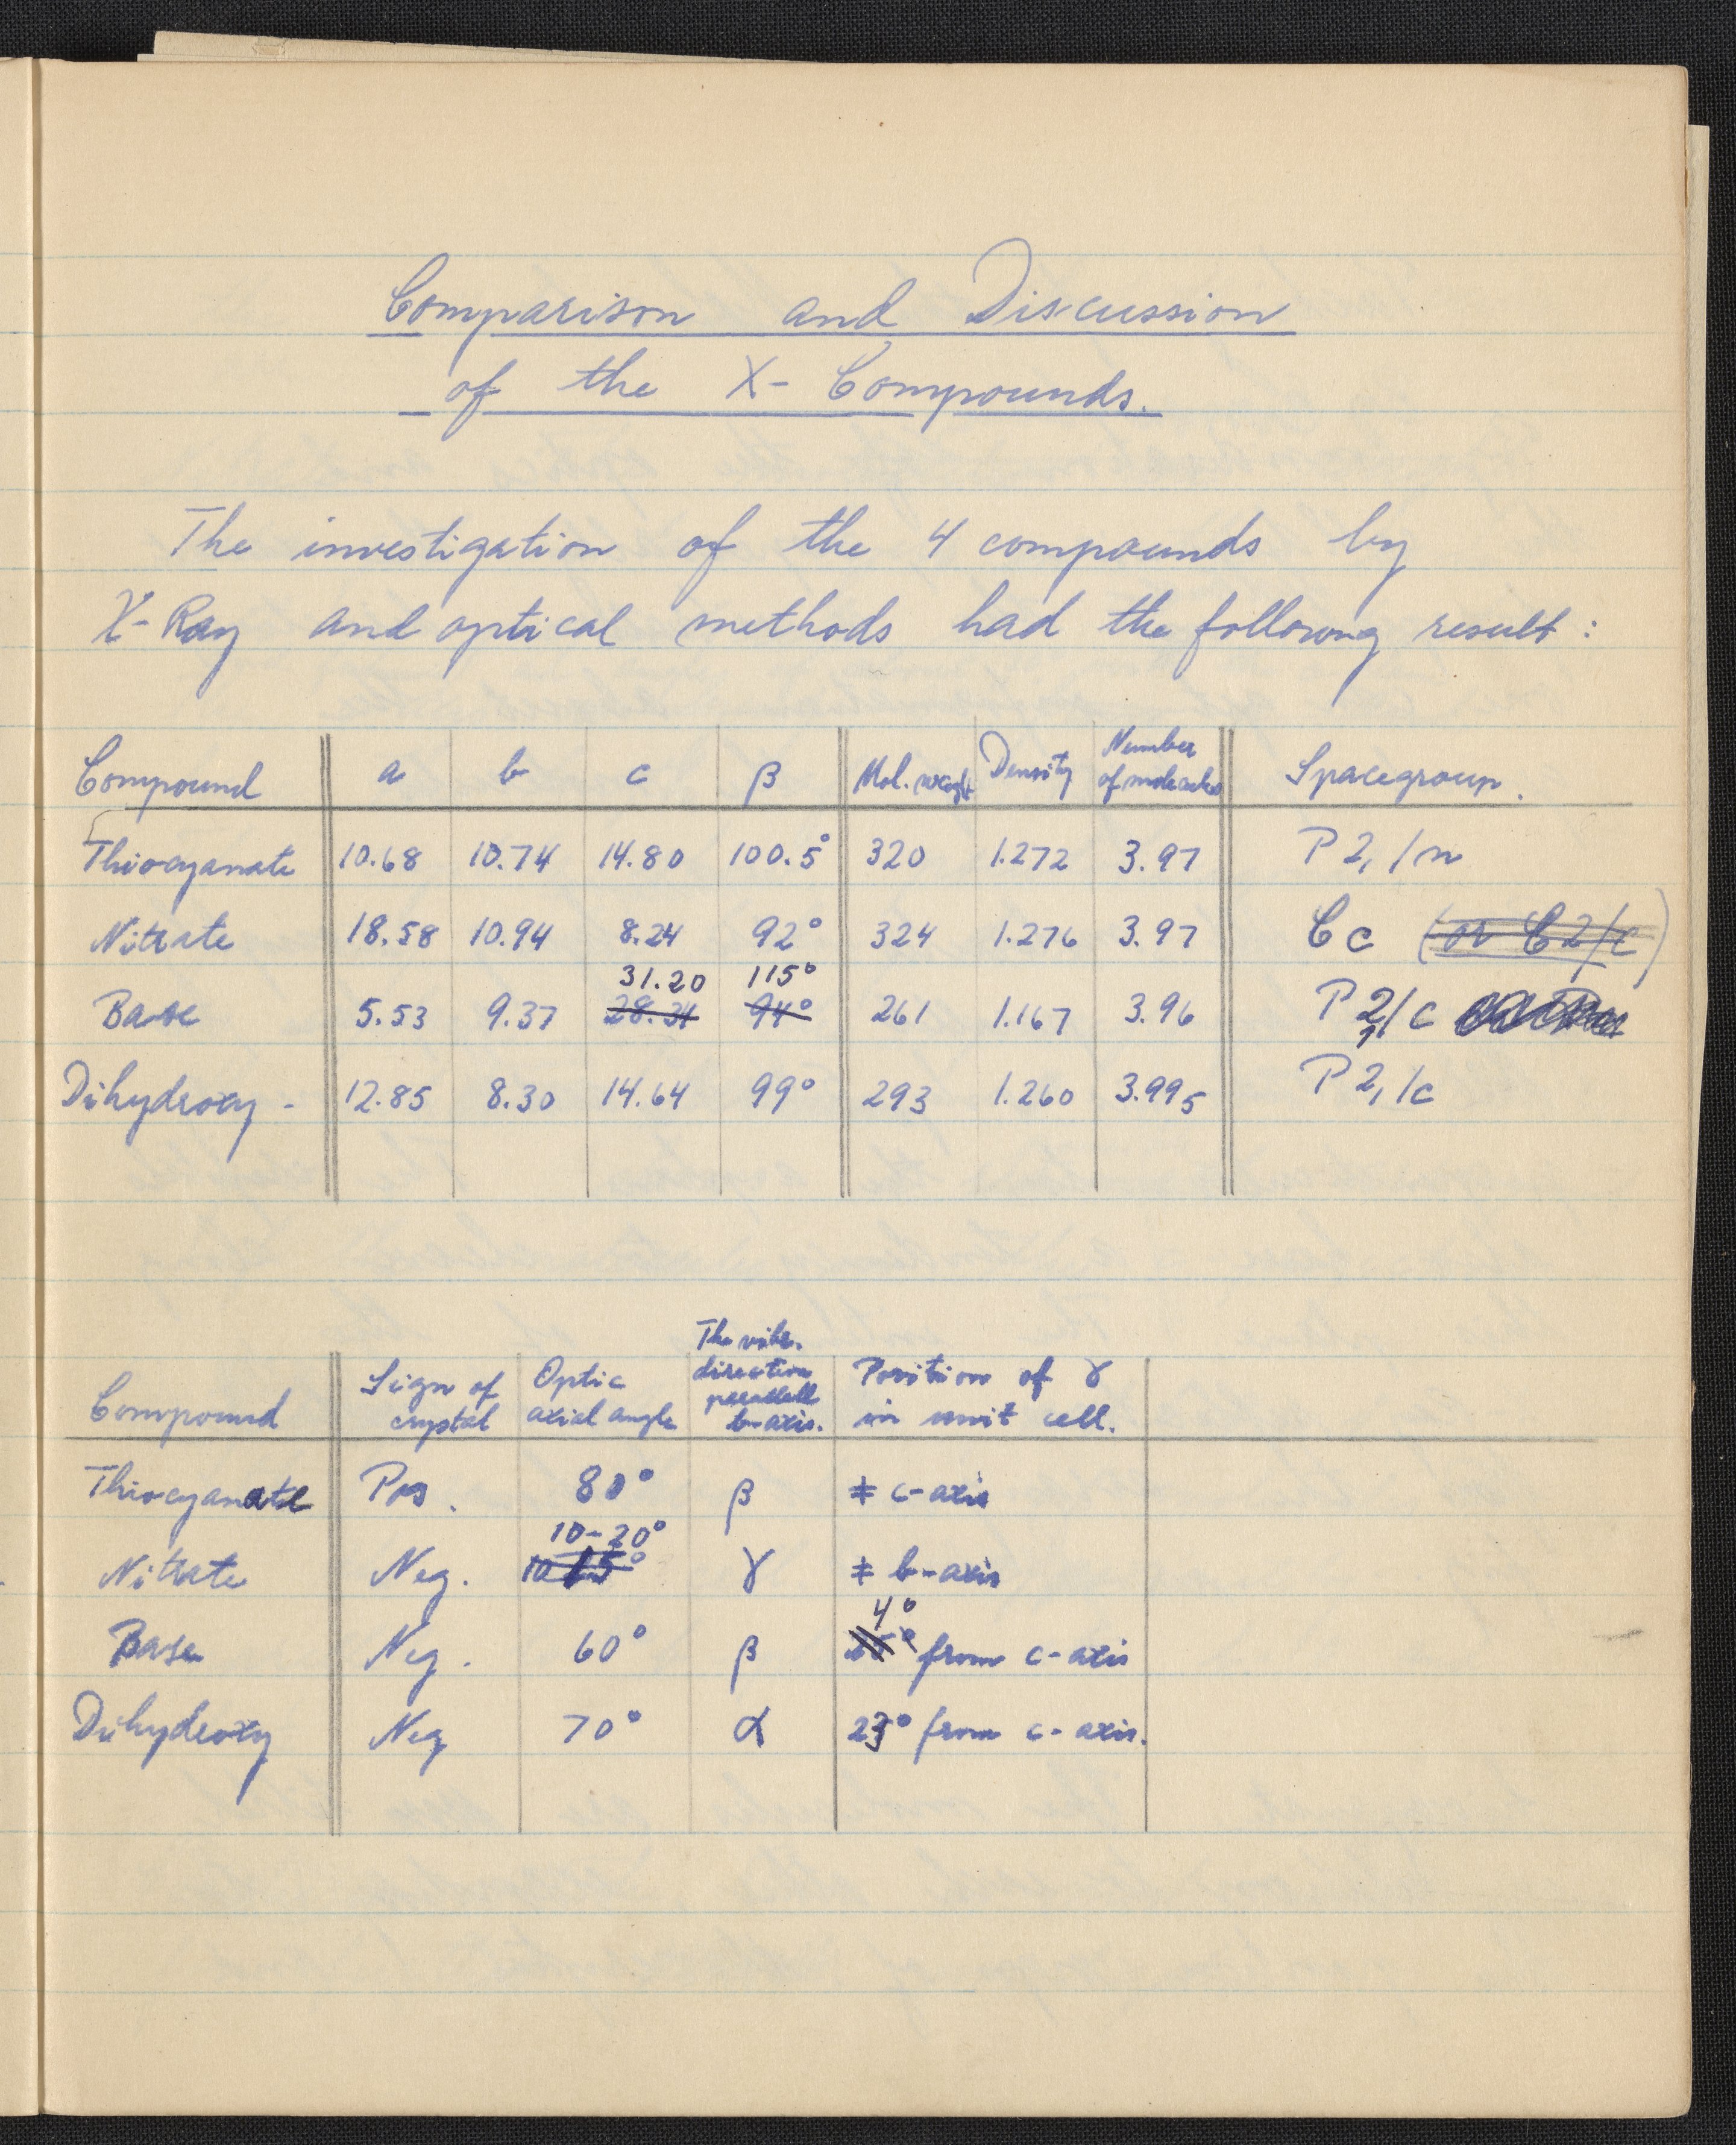 Comparison and Discussion
of the X-Compounds.
The investigation of the 4 compounds by
X-Ray and optical methods had the following result:
Compound a b c β Mol. weight Density Number of molecules Spacegroup.
Thiocyanate 10.68 10.74 14.80 100.5° 320 1.272 3.97 P2₁/n
Nitrate 18.58 10.94 8.24 92° 324 1.276 3.97 Cc (or C2/c)
31.20 115°
Base 5.53 9.37 28.34 94° 261 1.167 3.96 P2₁/c
Dihydroxy- 12.85 8.30 14.64 99° 293 1.260 3.995 P2₁/c
Compound Sign of crystal Optic axial angle The vibr. direction parallell b-axis. Position of γ in unit cell.
Thiocyanate Pos. 80° β ≠ c-axis
10-20°
Nitrate Neg. 10 15° γ ≠ b-axis
4°
Base Neg. 60° β from c-axis
Dihydroxy Neg 70° α 23° from c-axis.